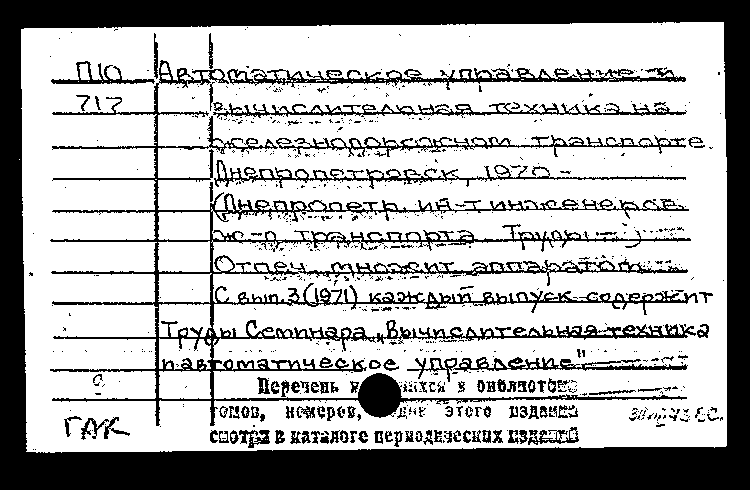 П10 Автоматическое управление и
717 вычислительная техника на
железнодорожном транспорте.
Днепропетровск, 1970 -
(Днепропетр. ин-т инженеров
ж-д транспорта. Труды ... )
Отпеч. множит. аппаратом
С вып. 3 (1971) каждый выпуск содержит
Труды Семинара „Вычислительная техника
и автоматическое управление"
Перечень в библиотеке
томов, номеров, этого издания
смотри в каталоге периодических изданий
ГАК